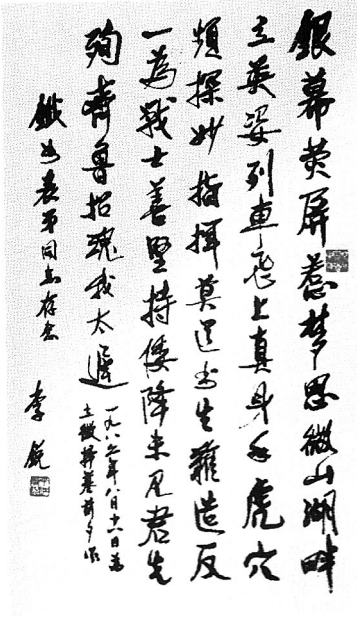 銀幕荧屏惹梦思微山湖畔
立英姿列車飛上真身手虎穴
頻探妙指揮莫道书生難造反
一為戰士善堅持倭降未見君先
殉齊魯招魂我太遲
一九八六年八月十六日為
掃墓前夕作
鐵如表弟同志存念
李銳